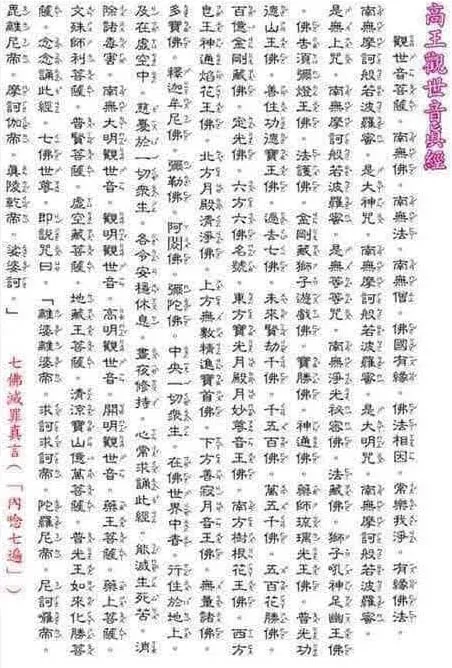 高王觀世音真經
觀世音菩薩。南無佛。南無法。南無僧。佛國有緣。佛法相因。常樂我淨。有緣佛法。
南無摩訶般若波羅蜜。是大神咒。南無摩訶般若波羅蜜。是大明咒。南無摩訶般若波羅蜜。
是無上咒。南無摩訶般若波羅蜜。是無等等咒。南無淨光祕密佛。法藏佛。獅子吼神足幽王佛
。佛告須彌燈王佛。法護佛。金剛藏獅子遊戲佛。寶勝佛。神通佛。藥師琉璃光王佛。普光功
德山王佛。善住功德寶王佛。過去七佛。未來賢劫千佛。千五百佛。萬五千佛。五百花勝佛。
百億金剛藏佛。定光佛。六方六佛名號。東方寶光月殿月妙尊音王佛。南方樹根花王佛。西方
皂王神通焰花王佛。北方月殿清淨佛。上方無數精進寶首佛。下方善寂月音王佛。無量諸佛。
多寶佛。釋迦牟尼佛。彌勒佛。阿閦佛。彌陀佛。中央一切眾生。在佛世界中者。行住於地上。
及在虛空中。慈憂於一切眾生。各令安穩休息。晝夜修持。心常求誦此經。能滅生死苦。消
除諸毒害。南無大明觀世音。觀明觀世音。高明觀世音。開明觀世音。藥王菩薩。藥上菩薩。
文殊師利菩薩。普賢菩薩。虛空藏菩薩。地藏王菩薩。清涼寶山億萬菩薩。普光王如來化勝菩
薩。念念誦此經。七佛世尊。即說咒曰。「離婆離婆帝。求訶求訶帝。陀羅尼帝。尼訶囉帝。
毘離尼帝。摩訶伽帝。真陵乾帝。娑婆訶。」
七佛滅罪真言(「內唸七遍」)